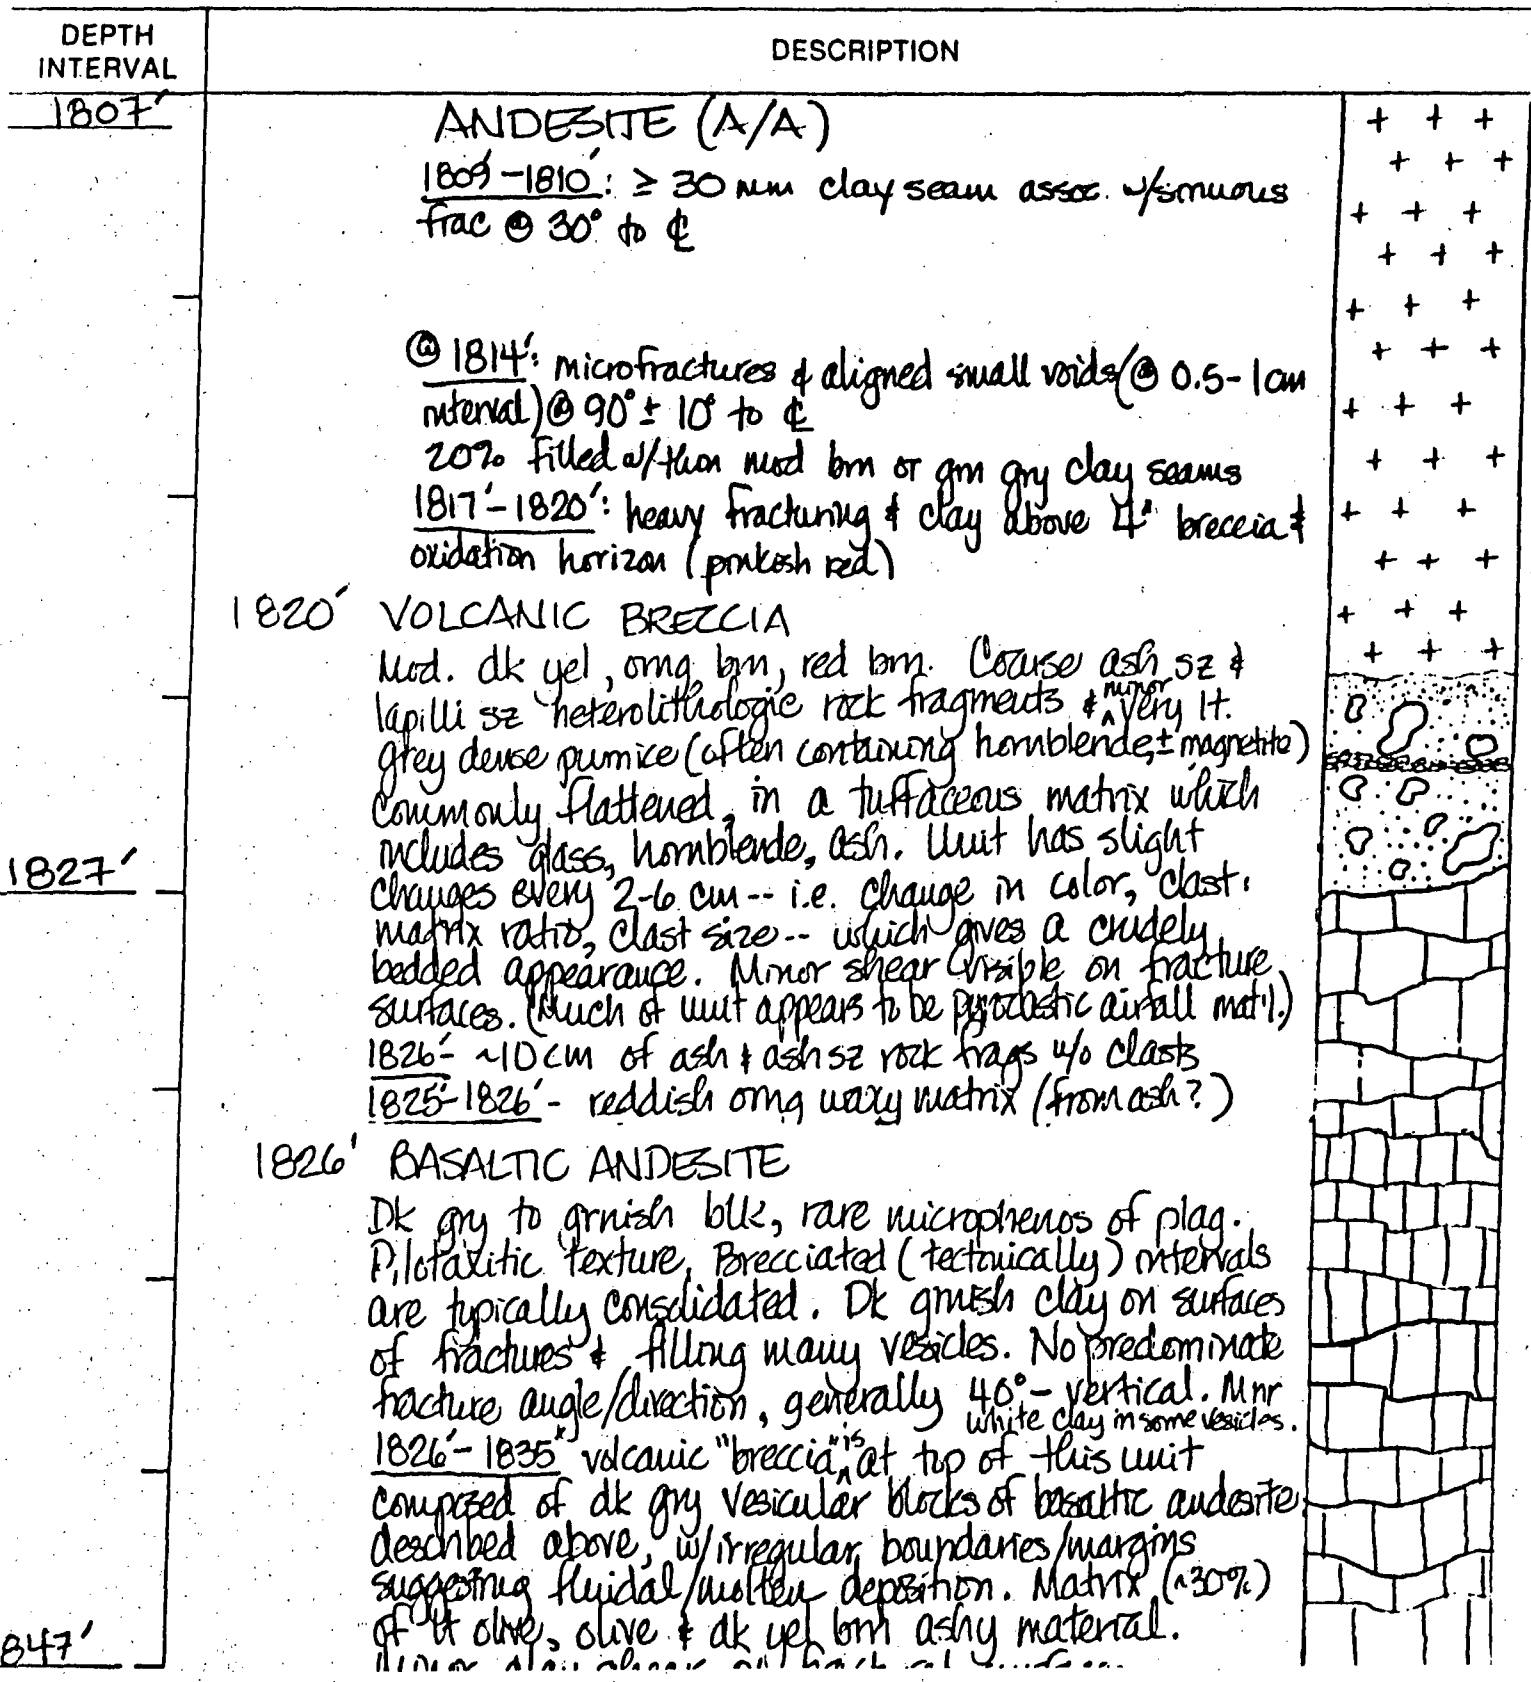 DEPTH
INTERVAL
DESCRIPTION
1807'
ANDESITE (A/A)
1809'-1810': ≥ 30 mm clay seam assoc. w/sinuous
frac @ 30° to ℄
@ 1814': microfractures & aligned small voids (@ 0.5-1cm
interval) @ 90° ± 10° to ℄
20% filled w/thin mod brn or grn gry clay seams
1817'-1820': heavy fracturing & clay above 4" breccia &
oxidation horizon (pinkish red)
1820' VOLCANIC BRECCIA
Mod. dk yel, orng brn, red brn. Coarse ash sz &
lapilli sz heterolithologic rock fragments & minor very lt.
grey dense pumice (often containing hornblende, ± magnetite)
commonly flattened, in a tuffaceous matrix which
includes glass, hornblende, ash. Unit has slight
1827'
changes every 2-6 cm -- i.e. change in color, clast:
matrix ratio, clast size -- which gives a crudely
bedded appearance. Minor shear visible on fracture
surfaces. (Much of unit appears to be pyroclastic airfall mat'l.)
1826'- ~10cm of ash & ash sz rock frags w/o clasts
1825'-1826' - reddish orng waxy matrix (from ash?)
1826' BASALTIC ANDESITE
Dk gry to grnish blk, rare microphenos of plag.
Pilotaxitic texture, Brecciated (tectonically) intervals
are typically consolidated. Dk grnish clay on surfaces
of fractures & filling many vesicles. No predominate
fracture angle/direction, generally 40°- vertical. Mnr
white clay in some vesicles.
1826'-1835' volcanic "breccia" is at top of this unit
composed of dk gry vesicular blocks of basaltic andesite
described above, w/irregular boundaries/margins
suggesting fluidal/molten deposition. Matrix (~30%)
of lt olive, olive & dk yel brn ashy material.
847'